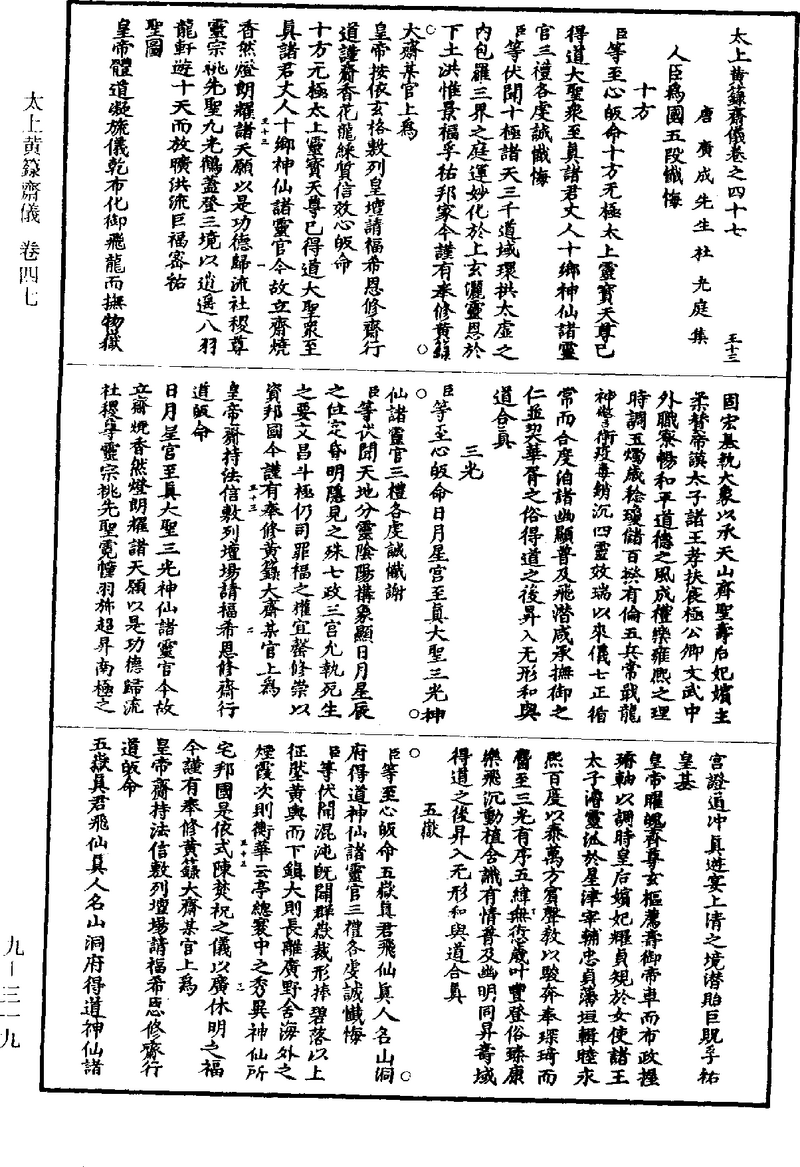 太上黃籙齋儀卷之四十七 五十三
唐廣成先生杜光庭集
人臣為國五段懺悔
十方
臣等至心皈命十方无極太上靈寶天尊已
得道大聖衆至真諸君丈人十鄉神仙諸靈
官三禮各虔誠懺悔
臣等伏聞十極諸天三千道域環拱太虛之
內包羅三界之庭運妙化於上玄灑靈恩於
下土洪惟景福孚祐邦家今謹有奉修黃籙
大齋某官上為
皇帝按依玄格敷列皇壇請福希恩修齋行
道謹齋香花龍綵質信效心皈命
十方无極太上靈寶天尊已得道大聖衆至
真諸君丈人十鄉神仙諸靈官今故立齋燒
香然燈朗耀諸天願以是功德歸流社稷尊
靈宗祧先聖九光鶴蓋登三境以逍遥八羽
龍軒遊十天而放曠洪流巨福密祐
聖圖
皇帝體道凝旒儀乾布化御飛龍而撫物嶽
固宏基執大象以承天山齊聖壽后妃嬪主
柔贊帝謨太子諸王孝扶宸極公卿文武中
外職寮暢和平道德之風成禮樂雍熙之理
時調玉燭歲稔瓊儲百揆有倫五兵常戢龍
神警衛疫毒銷沉四靈效瑞以來儀七正循
常而合度洎諸幽顯普及飛潜咸承撫御之
仁並契華胥之俗得道之後昇入无形和與
道合真
三光
臣等至心皈命日月星宮至真大聖三光神
仙諸靈官三禮各虔誠懺謝
臣等伏聞天地分靈陰陽構象顯日月星辰
之位定昏明隱見之殊七政三宮允執死生
之要文昌斗極仍司罪福之權宜罄修崇以
資邦國今謹有奉修黃籙大齋某官上為
皇帝齋持法信敷列壇場請福希恩修齋行
道皈命
日月星宮至真大聖三光神仙諸靈官今故
立齋燒香然燈朗耀諸天願以是功德歸流
社稷尊靈宗祧先聖霓幢羽旆超昇南極之
宮證道冲真遊宴上清之境潜貽巨貺孚祐
皇基
皇帝曜魄齊尊玄樞薦壽御帝車而布政握
璿軸以調時皇后嬪妃耀貞規於女使諸王
太子濬靈派於星津宰輔忠貞藩垣輯睦永
熙百度以泰萬方賓聲教以駿奔奉琛琦而
麕至三光有序五緯無愆歲叶豐登俗臻康
樂飛沉動植含識有情普及幽明同昇壽域
得道之後昇入无形和與道合真
五嶽
臣等至心皈命五嶽真君飛仙真人名山洞
府得道神仙諸靈官三禮各虔誠懺悔
臣等伏聞混沌旣開群嶽裁形捧碧落以上
征壓黃輿而下鎮大則長離廣野舍海外之
煙霞次則衡華云亭總寰中之秀異神仙所
宅邦國是依式陳焚祝之儀以廣休明之福
今謹有奉修黃籙大齋某官上為
皇帝齋持法信敷列壇場請福希恩修齋行
道皈命
五嶽真君飛仙真人名山洞府得道神仙諸
太上黃籙齋儀 卷四七
九-三一九